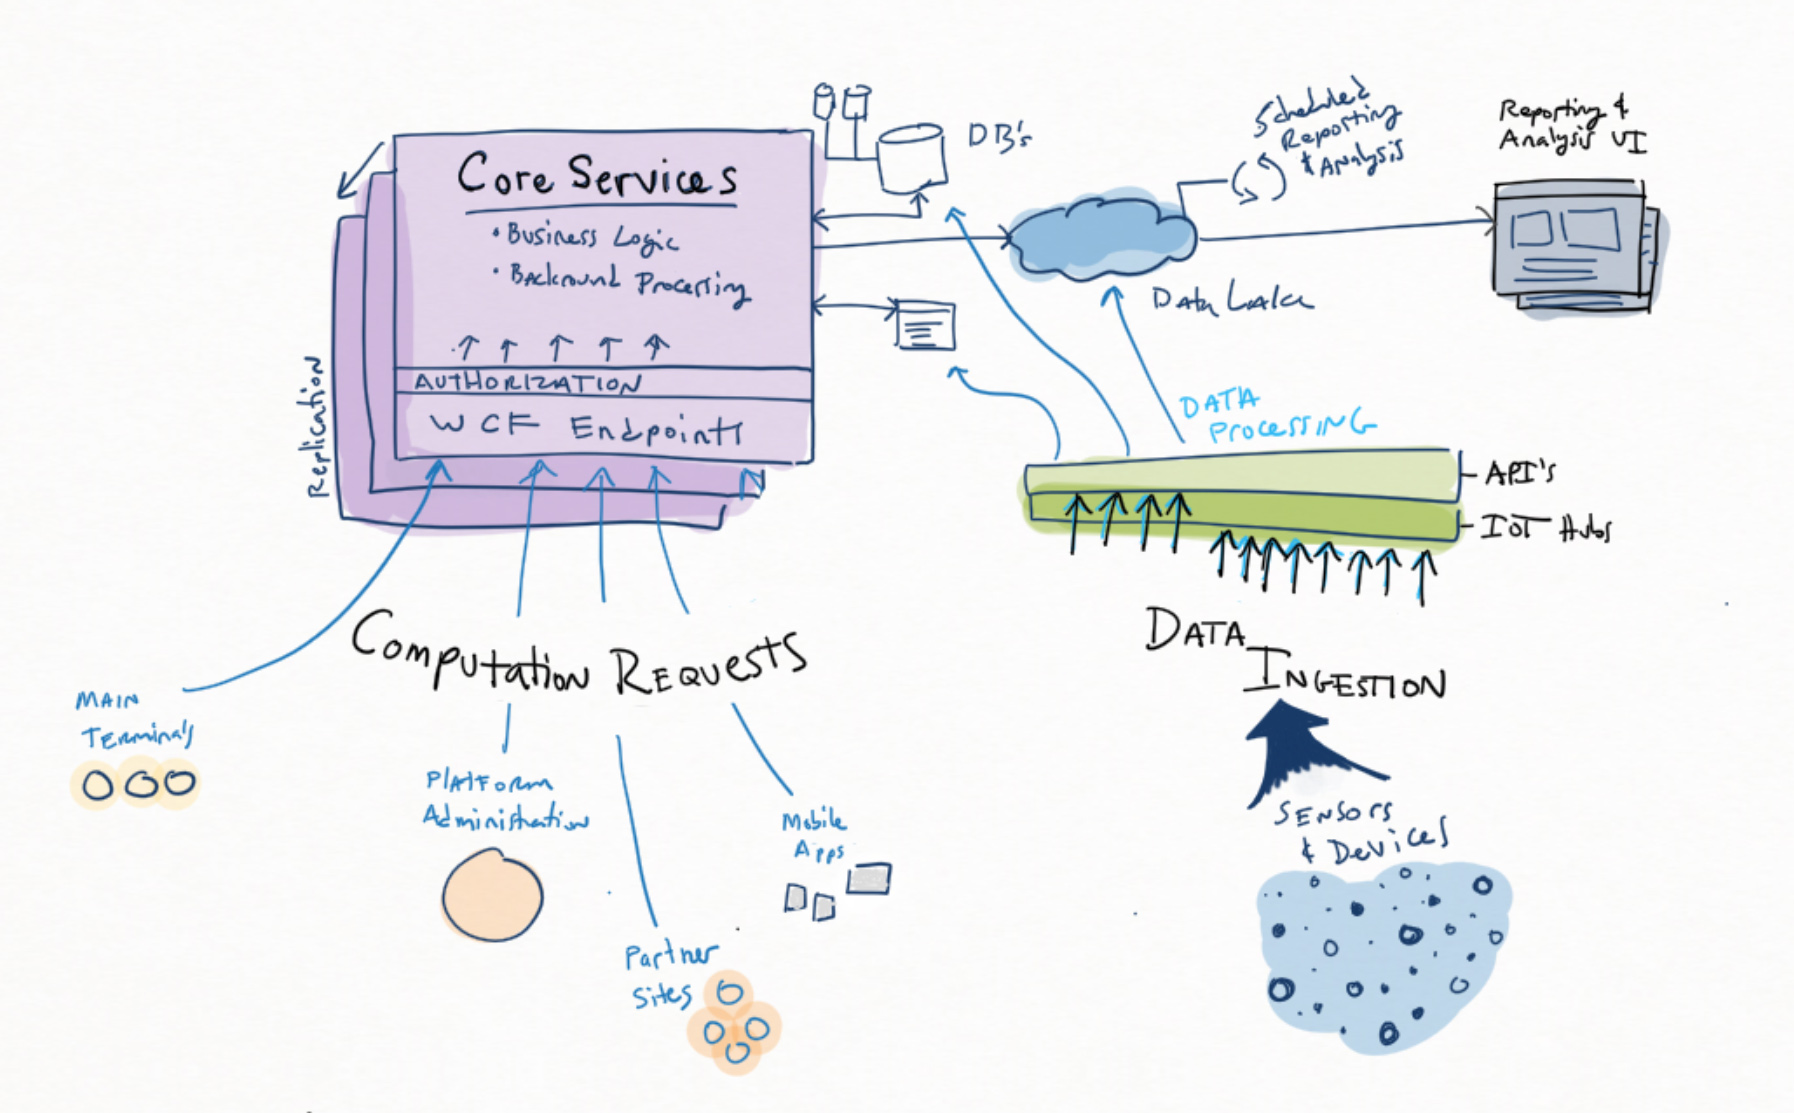 Core Services
• Business Logic
• Backround Processing
AUTHORIZATION
WCF Endpoints
Replication
DB's
Scheduled
Reporting
& Analysis
Reporting &
Analysis UI
Data Lake
DATA
Processing
API's
IOT Hubs
Computation Requests
DATA
INGESTION
MAIN
Terminals
Platform
Administration
Partner
Sites
Mobile
Apps
Sensors
& Devices